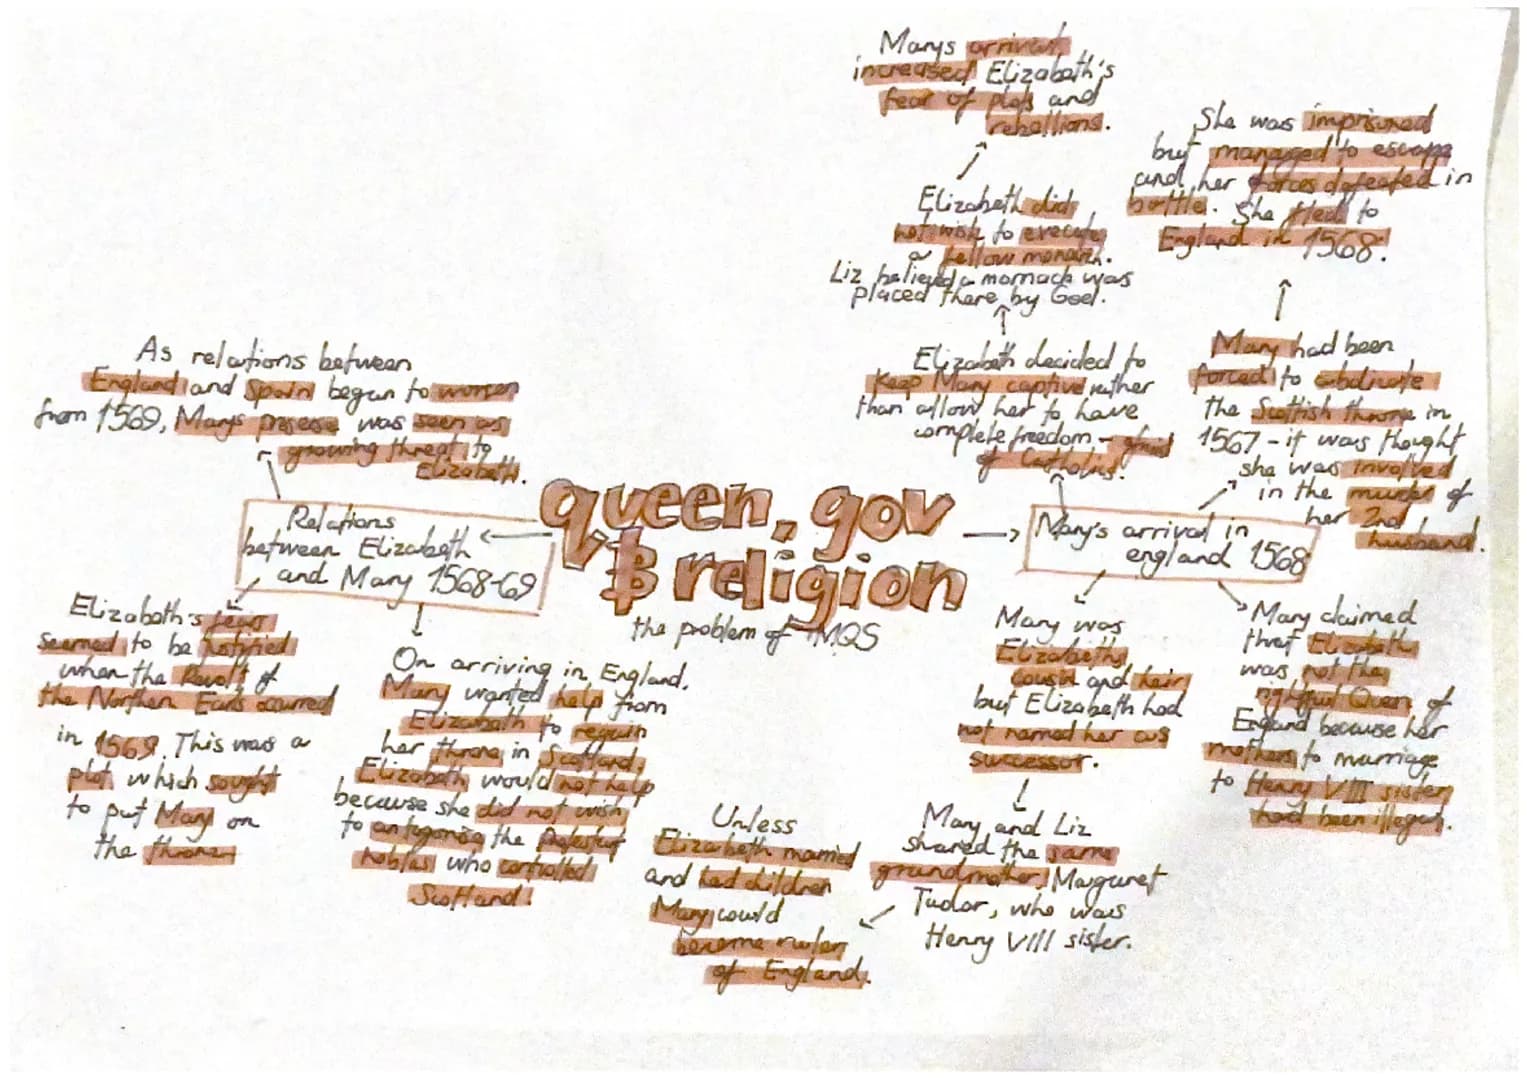 queen, gov
& religion
the problem of MQS
Relations
between Elizabeth
and Mary 1568-69
As relations between
England and Spain began to worsen
from 1569, Marys presense was seen as
growing threat to
Elizabeth.
Elizabeth's fears
seemed to be justified
when the Revolt of
the Northern Earls ocurred
in 1569. This was a
plot which sought
to put Mary on
the throne.
On arriving in England,
Mary wanted help from
Elizabeth to regain
her throne in Scotland.
Elizabeth would not help
because she did not wish
to antagonise the Protestant
nobles who controlled
Scotland!
Mary's arrival in
england 1568
Elizabeth decided to
Keep Mary captive rather
than allow her to have
complete freedom - afraid
of Catholics.
Elizabeth did
not wish to execute
a fellow monarch.
Liz believed a mornach was
placed there by God.
Marys arrival
increased Elizabeth's
fear of plots and
rebellions.
Mary had been
forced to abdicate
the Scottish throne in
1567 - it was thought
she was involved
in the murder of
her 2nd
husband.
She was imprisoned
but managed to escape
and her forces defeated in
battle. She fled to
England in 1568.
Mary was
Elizabeths
cousin and heir
but Elizabeth had
not named her as
successor.
Mary and Liz
shared the same
grandmother, Margaret
Tudor, who was
Henry VIII sister.
Unless
Elizabeth married
and had children
Mary could
become ruler
of England.
Mary claimed
that Elizabeth
was not the
rightful Queen of
England because her
mothers to marriage
to Henry VIII sister
had been illegal.